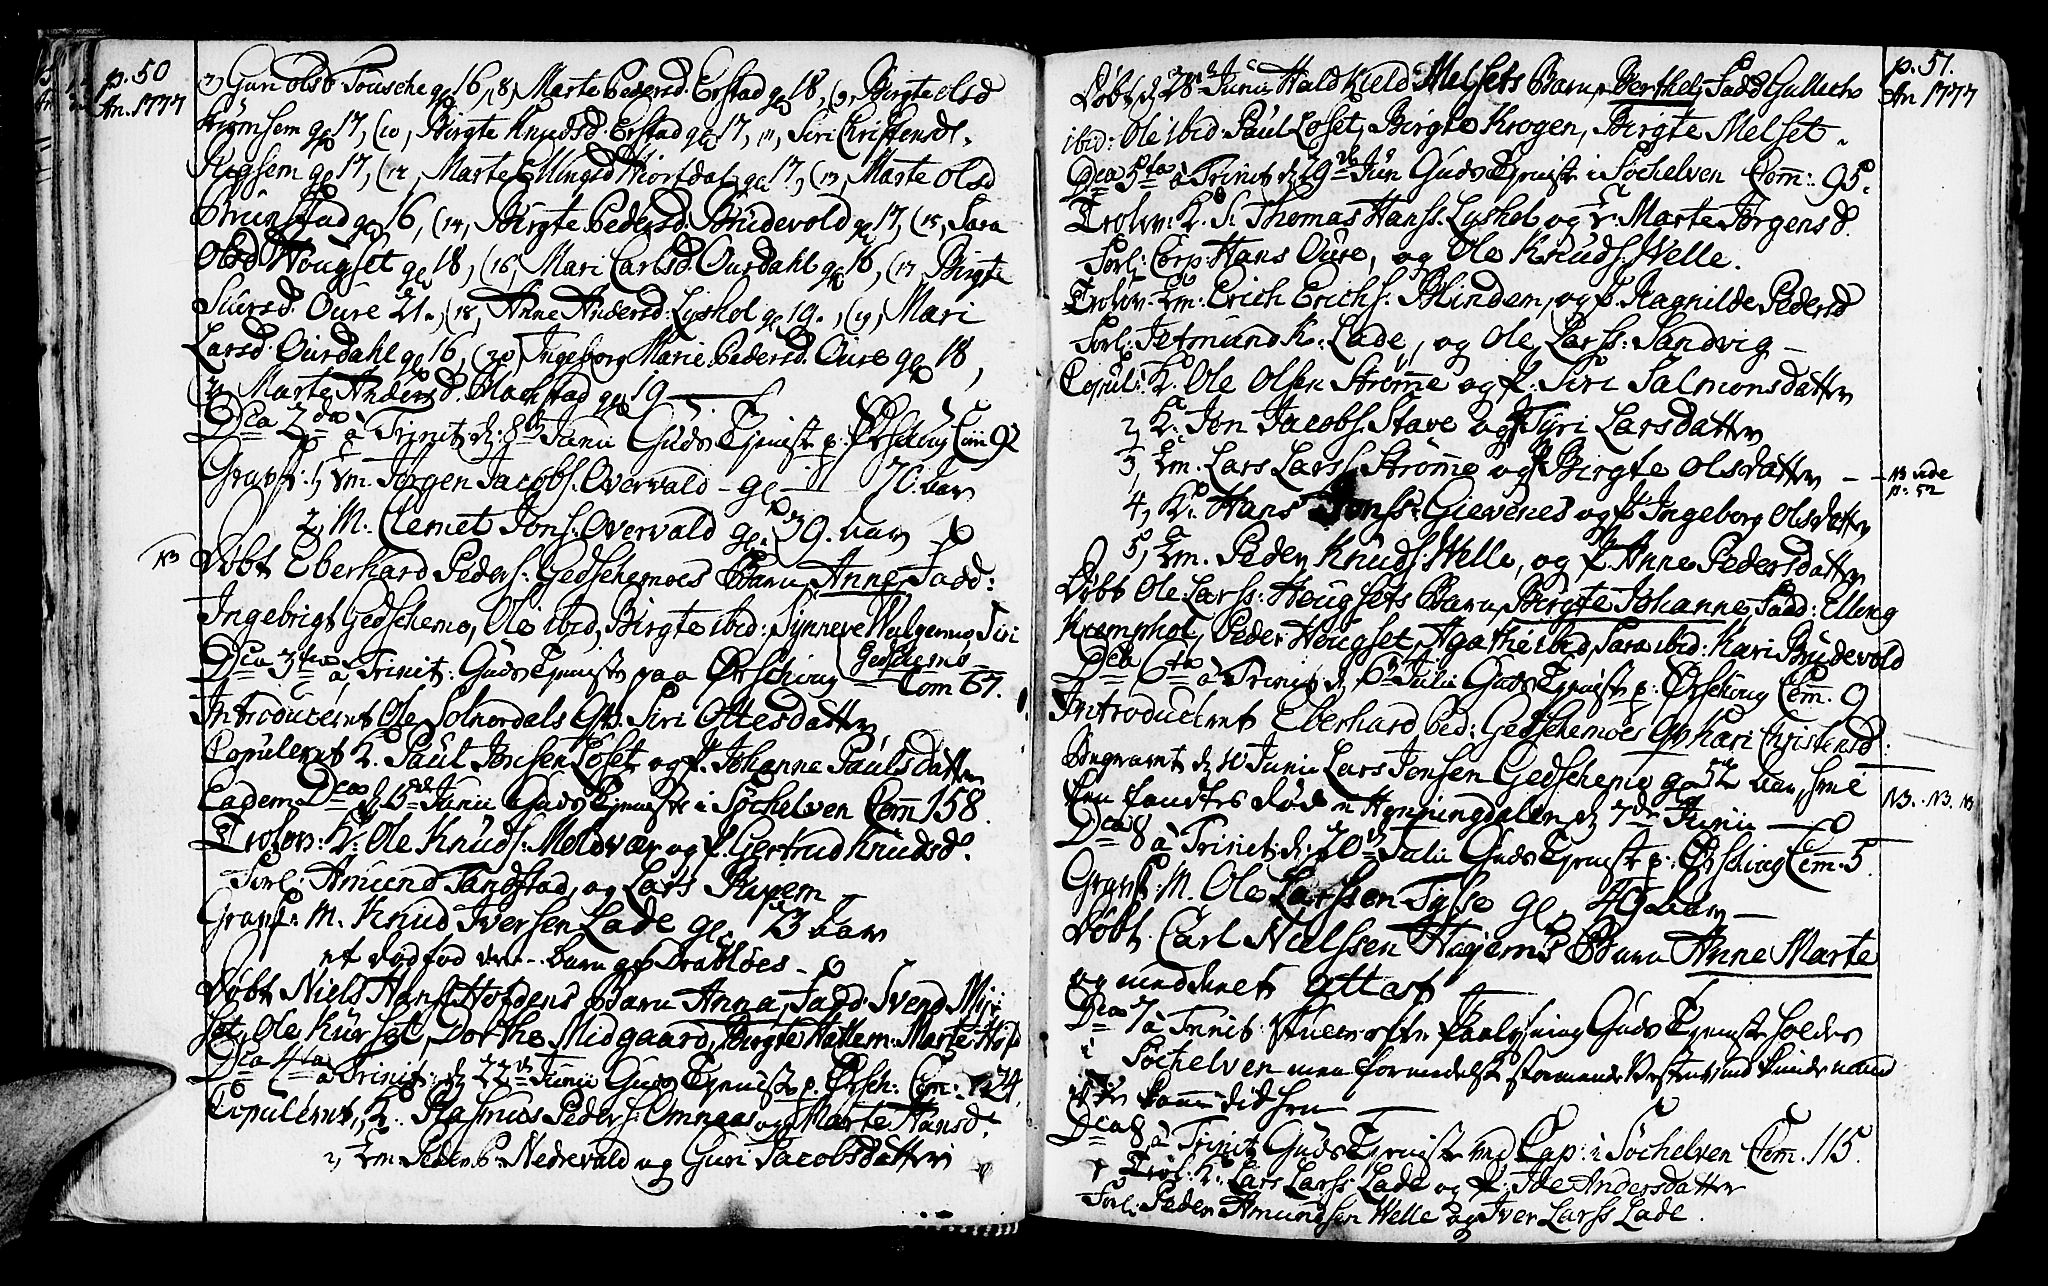 p. 50
An. 1777
7, Guri Olsd Tousche gl 16, 8, Marte Pedersd: Erstad gl 18, (9, Birgte Olsd
gl 17, (10, Birgte Knudsd. Erstad gl 17, 11, Siri Christensd.
gl 17, (12, Marte Ellingsd Hiortdal gl 17, (13, Marte Olsd
Brunstad gl 16, (14, Birgte Pedersd: Brudevold gl 17, (15, Sara
Olsd Hougset gl 18, (16, Mari Carlsd. Ourdahl gl 16, (17, Birgte
Siursd. Oure 21., (18, Anne Andersd: Lyshol gl 19., (19, Mari
Larsd. Ourdahl gl 16, (20, Ingeborg Marie Pedersd. Oure gl 18,
21, Marte Andersd. Blachstad gl 19
Dca 2da à Trinit d: 8de Junii Guds Tieniste p: Ørschoug Com 92
Gravf: 1, Em. Jørgen Jacobs. Overvald - gl - 70. aar
2, M. Clemet Jons. Overvald gl. 39. aar
NB
Døbt Eberhard Peders: Gedschemoes Barn, Anne, Fadd:
Ingebrigt Gedschemo, Ole ibid, Birgte ibid: Synneve Siri
Gedschems
Dca 3tia à Trinit: Guds Tieniste paa Ørschoug Com 67.
Introduceret Ole Solnordals Qv. Siri Ottesdatter
Copuleret K. Paul Løset og P. Johanne Paulsdatter
Eadem Dca d. 15de Junii Guds Tieniste i Søchelven Com 158.
Trolov: K: Ole Knuds: Meldvær og P. Gertrud Knudsd.
Forl: Amund Tandstad, og Lars
Gravf: M. Knud Iversen Lade gl. 73 aar
et dødfød barn gl Drabløes
Døbt Niels Hans. Hofdens Barn Anna, Fadd: Svend
set, Ole Kurset, Dorthe Midgaard, Birgte Hattem: Marte
Dca 4ta à Trinit: d 22de Junii Guds Tieniste p. Ørsch: Com: 124.
Copuleret, K. Rasmus Peders: Omnaas og Marte Hansd.
2, Em. Peder P. Nedrevald og Guri Jacobsdatter
p. 51.
An 1777
Døbt, d 28de Junii Hald Kield Melsets Barn, Berthel, Fadd Gullich
ibid: Ole ibid: Paul Løset, Birgte Krogen, Birgte Melset.
Dca 5ta à Trinit d 29de Jun Guds Tieniste i Søchelven Com: 95.
Trolov: K. S. Thomas Hans. Lyshol og E: Marte Jørgensd.
Forl: Corp: Hans Oure, og Ole Knuds. Welle.
Trolov. Em: Erich Erichs: Blindem, og P. Ragnilde Pedersd
Forl: Jetmund K: Lade, og Ole Larss: Sandvig
Copul: K. Ole Olsen Strømme og P. Siri Salmonsdatter
2, K. Jon Jacobs. Stave og P Tyri Larsdatter
3, Em. Lars Larss. Strømme og P Birgte Olsdatter
NB vide
p. 52
4, K. Hans Jonss: Gievenes og P Ingeborg Olsdatter
5, Em. Peder Knuds. Welle, og P. Anne Pedersdatter
Døbt Ole Larss: Hougsets Barn, Birgte Johanne, Fadd: Elling
Kremphol, Peder Hougset, Agathe ibid, Sara ibid: Kari Brudevold
Dca 6ta à Trinit d 6te Julii Guds Tieniste p: Ørschoug Com. 9
Introduceret Eberhard Ped: Gedschemoes Qv. Kari Christensd:
Begravet d 10 Junii Lars Jonsen Gedschemo gl 52 aar, som
fandtes død i Honningdalen d 7de Junii
NB. NB. NB
Dca 8 à Trinit: d. 20de Julii Guds Tieniste p: Ørschoug Com. 5.
Gravf: M. Ole Larssen Tysse gl. 49 aar
Døbt Carl Nielssen Hagems Barn Anne Marte
og meddelet attest
Dca 7 à Trinit: skulle efter Guds Tieniste holdes
i Søchelven men formedelst stormende ved kunde
komme did hen
Dca 8 à Trinit Guds Tieniste ved Cap: i Søchelven Com. 115.
Trol: K. Lars Larss: Lade og P. Ide Andersdatter
Forl: Peder Amundsen Welle og Iver Larss Lade.